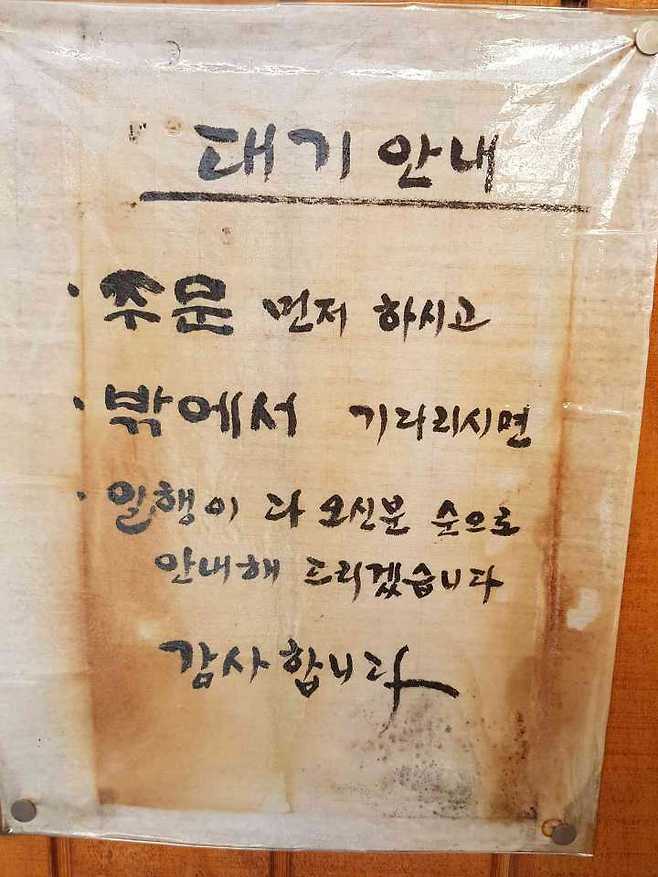 대기 안내
· 주문 먼저 하시고
· 밖에서 기다리시면
· 일행이 다 오신분 순으로
안내해 드리겠습니다
감사합니다